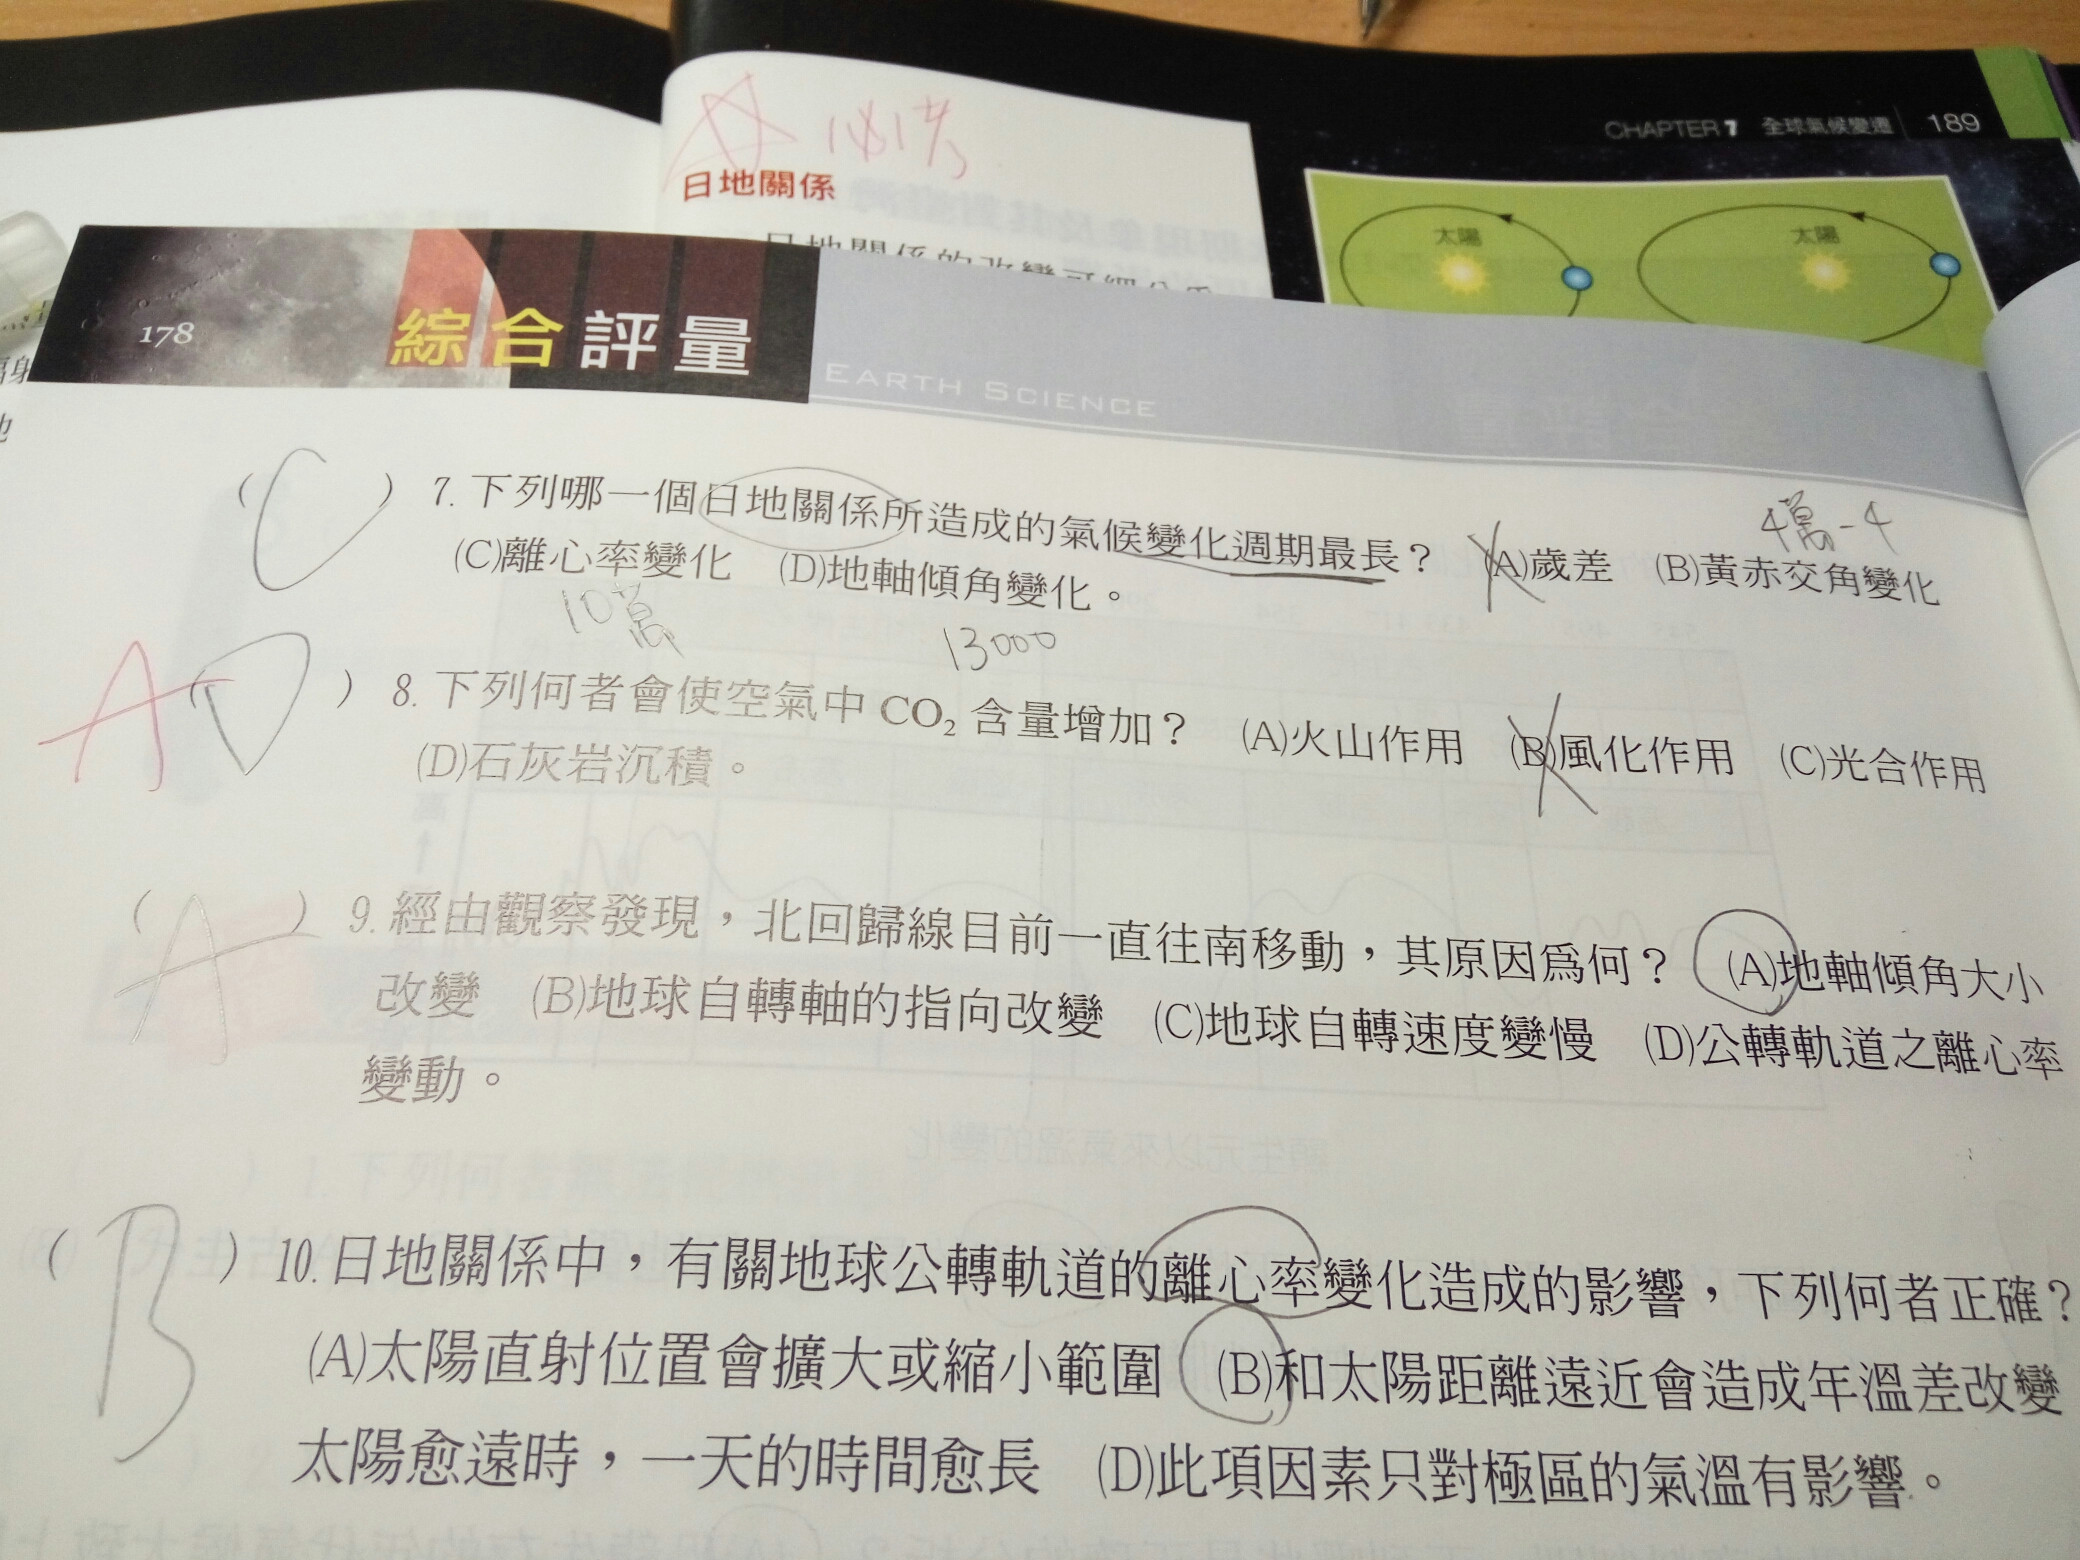 必考
日地關係
CHAPTER 7 全球氣候變遷 189
太陽 太陽
178 綜合評量
EARTH SCIENCE
4萬-4
(C) 7.下列哪一個日地關係所造成的氣候變化週期最長? (A)歲差 (B)黃赤交角變化
(C)離心率變化 (D)地軸傾角變化。
10萬 13000
A(D) 8.下列何者會使空氣中 CO₂ 含量增加? (A)火山作用 (B)風化作用 (C)光合作用
(D)石灰岩沉積。
(A) 9.經由觀察發現,北回歸線目前一直往南移動,其原因為何? (A)地軸傾角大小
改變 (B)地球自轉軸的指向改變 (C)地球自轉速度變慢 (D)公轉軌道之離心率
變動。
(B) 10.日地關係中,有關地球公轉軌道的離心率變化造成的影響,下列何者正確?
(A)太陽直射位置會擴大或縮小範圍 (B)和太陽距離遠近會造成年溫差改變
太陽愈遠時,一天的時間愈長 (D)此項因素只對極區的氣溫有影響。